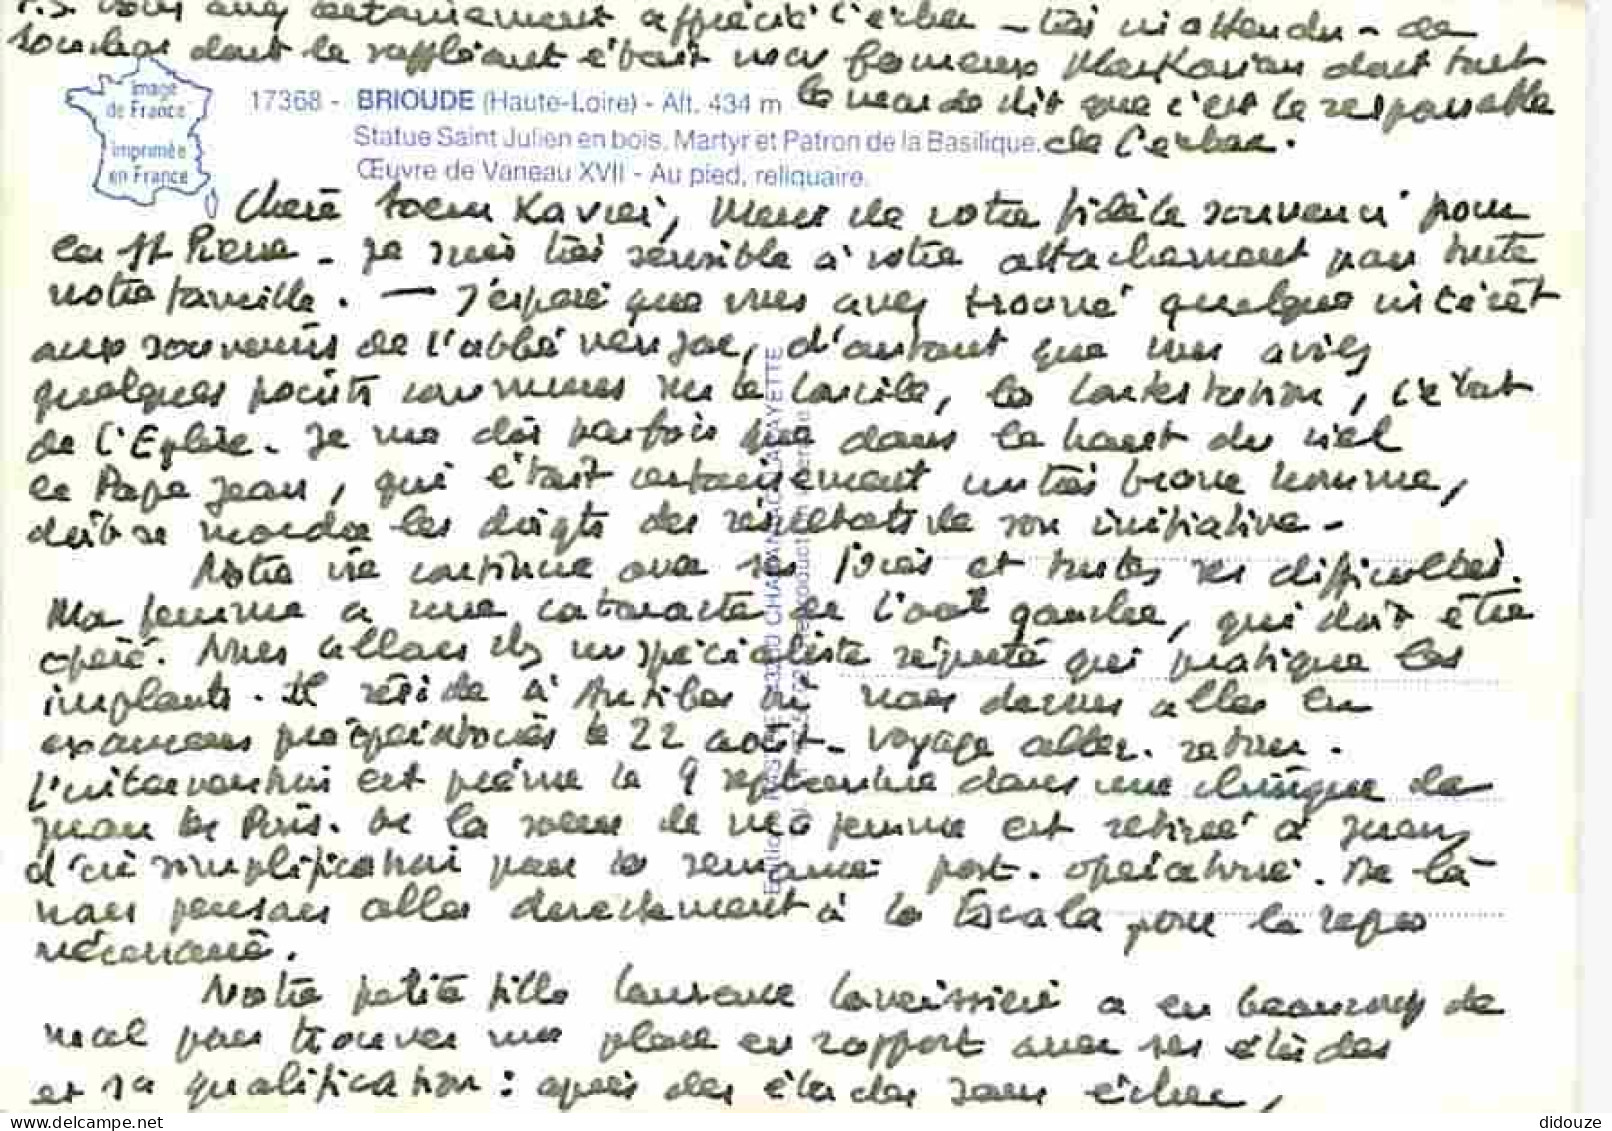 P.S. Vous avez certainement apprécié l'échec - très inattendu - de
Souchon dont le suppléant était mon fameux Markarian dont tout
le monde dit que c'est le responsable
de l'échec.
Image
de France
imprimée
en France
17368 - BRIOUDE (Haute-Loire) - Alt. 434 m
Statue Saint Julien en bois, Martyr et Patron de la Basilique.
Œuvre de Vaneau XVII - Au pied, reliquaire.
Chère Soeur Xavier, Merci de votre fidèle souvenir pour
la St Pierre - Je suis très sensible à votre attachement pour toute
notre famille. — J'espère que vous avez trouvé quelque intérêt
aux souvenirs de l'abbé , d'autant que vous aviez
quelques points communs sur le Concile, la Contestation, l'état
de l'Eglise. Je me dis parfois que dans le haut du ciel
le Pape Jean, qui était certainement un très brave homme,
doit se mordre les doigts des résultats de son initiative -
Notre vie continue avec ses joies et toutes ses difficultés.
Ma femme a une cataracte de l'oeil gauche, qui doit être
opéré. Nous allons chez un spécialiste réputé qui pratique les
implants. Il réside à Antibes où nous devons aller en
examens préopératoires le 22 août - Voyage aller-retour.
L'intervention est prévue le 9 septembre dans une clinique de
Juan les Pins. Or la soeur de ma femme est retirée à Juan,
d'où simplification pour la semaine post-opératoire. De là
nous pensons aller directement à la Escala pour le repos
nécessaire.
Notre petite fille Laurence Laveissière a eu beaucoup de
mal pour trouver une place en rapport avec ses études
et sa qualification : après des études sans échec,
CHAVANIAC-LAFAYETTE
didouze